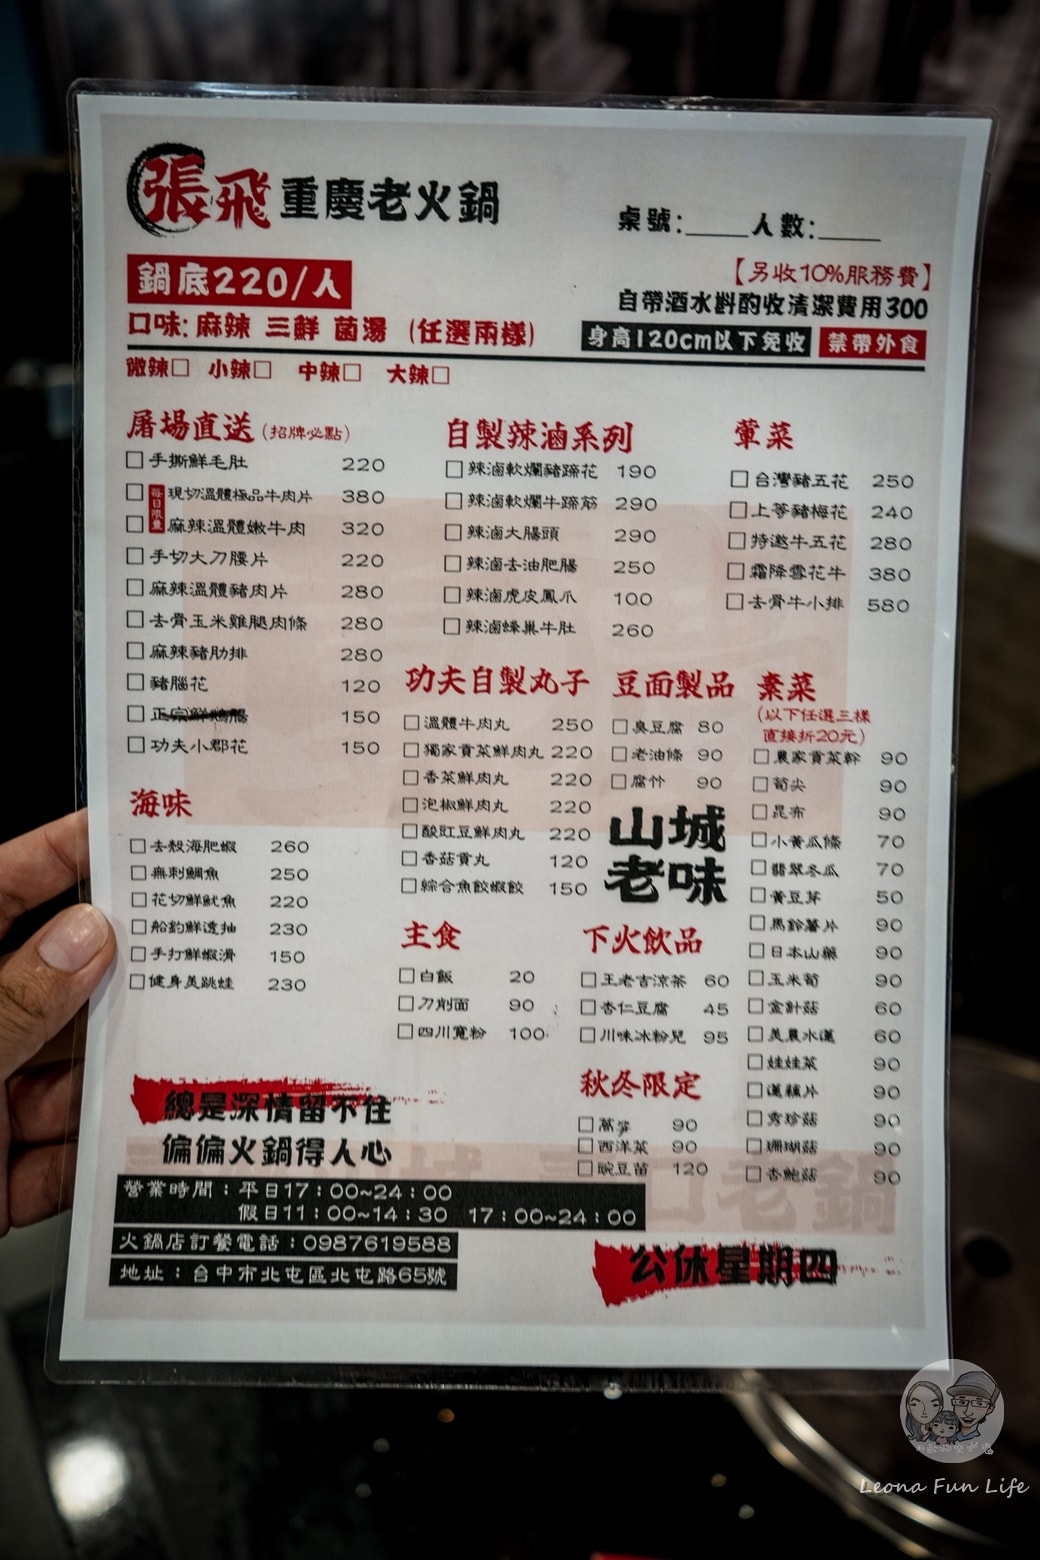 張飛重慶老火鍋
桌號:____人數:____
鍋底220/人
【另收10%服務費】
自帶酒水斟酌收清潔費用300
口味:麻辣 三鮮 菌湯 (任選兩樣)
身高120cm以下免收 禁帶外食
微辣□ 小辣□ 中辣□ 大辣□
屠場直送(招牌必點)
□手撕鮮毛肚 220
每日限量
□現切溫體極品牛肉片 380
□麻辣溫體嫩牛肉 320
□手切大刀腰片 220
□麻辣溫體豬肉片 280
□去骨玉米雞腿肉條 280
□麻辣豬肋排 280
□豬腦花 120
□正宗鮮鵝腸 150
□功夫小郡花 150
海味
□去殼海肥蝦 260
□無刺鯛魚 250
□花切鮮魷魚 220
□船釣鮮透抽 230
□手打鮮蝦滑 150
□健身美跳蛙 230
自製辣滷系列
□辣滷軟爛豬蹄花 190
□辣滷軟爛牛蹄筋 290
□辣滷大腸頭 290
□辣滷去油肥腸 250
□辣滷虎皮鳳爪 100
□辣滷蜂巢牛肚 260
葷菜
□台灣豬五花 250
□上等豬梅花 240
□特邀牛五花 280
□霜降雪花牛 380
□去骨牛小排 580
功夫自製丸子
□溫體牛肉丸 250
□獨家貢菜鮮肉丸 220
□香菜鮮肉丸 220
□泡椒鮮肉丸 220
□酸豇豆鮮肉丸 220
□香菇貢丸 120
□綜合魚餃蝦餃 150
豆面製品
□臭豆腐 80
□老油條 90
□腐竹 90
山城
老味
素菜
(以下任選三樣
直接折20元)
□農家貢菜幹 90
□筍尖 90
□昆布 90
□小黃瓜條 70
□翡翠冬瓜 70
□黃豆芽 50
□馬鈴薯片 90
□日本山藥 90
□玉米筍 90
□金針菇 60
□美農水蓮 60
□娃娃菜 90
□蓮藕片 90
□秀珍菇 90
□珊瑚菇 90
□杏鮑菇 90
主食
□白飯 20
□刀削面 90
□四川寬粉 100
下火飲品
□王老吉涼茶 60
□杏仁豆腐 45
□川味冰粉兒 95
秋冬限定
□萵筍 90
□西洋菜 90
□豌豆苗 120
總是深情留不住
偏偏火鍋得人心
營業時間:平日17:00~24:00
假日11:00~14:30 17:00~24:00
火鍋店訂餐電話:0987619588
地址:台中市北屯區北屯路65號
公休星期四
老鍋
Leona Fun Life